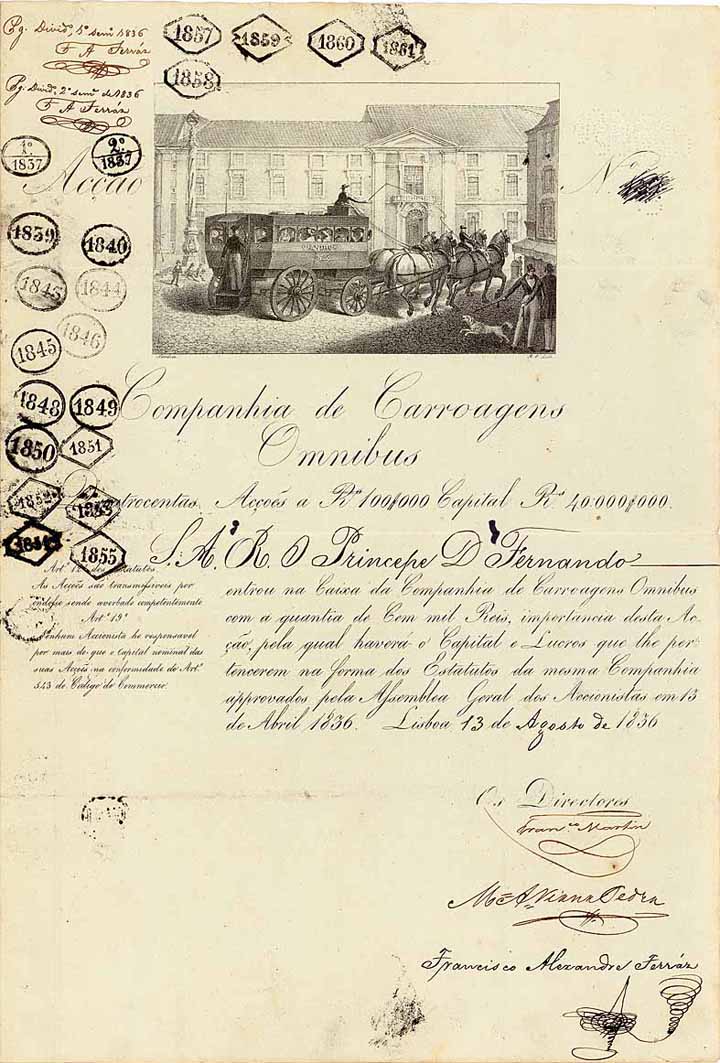 Pg. Divid. 1º sem. 1836
F A Ferráz
Pg. Divid. 2º sem. de 1836
F A Ferráz
1857
1859
1860
1861
1858
1º 1837
2º 1837
Acção
Nº
OMNIBUS
1839
1840
1845
1844
1846
1845
1848
1849
1850
1851
1852
1853
1855
Companhia de Carroagens
Omnibus
Quatrocentas Acções a Rs. 100$000 Capital Rs. 40:000$000.
S. A. R. O Princepe D Fernando
entrou na Caixa da Companhia de Carroagens Omnibus
com a quantia de Cem mil Reis, importancia desta Ac-
ção, pela qual haverá o Capital e Lucros que lhe per-
tencerem na forma dos Estatutos da mesma Companhia
approvados pela Assemblea Geral dos Accionistas em 13
de Abril 1836. Lisboa 13 de Agosto de 1836
dos Estatutos.
As Acções são transmissiveis por
endosse sendo averbado competentemente
Artº 19º
Nenhum Accionista he responsavel
por mais do que o Capital nominal das
suas Acções na conformidade do Artº
543 do Codigo do Commercio.
Os Directores
Franco. Martin
Francisco Alexandre Ferráz